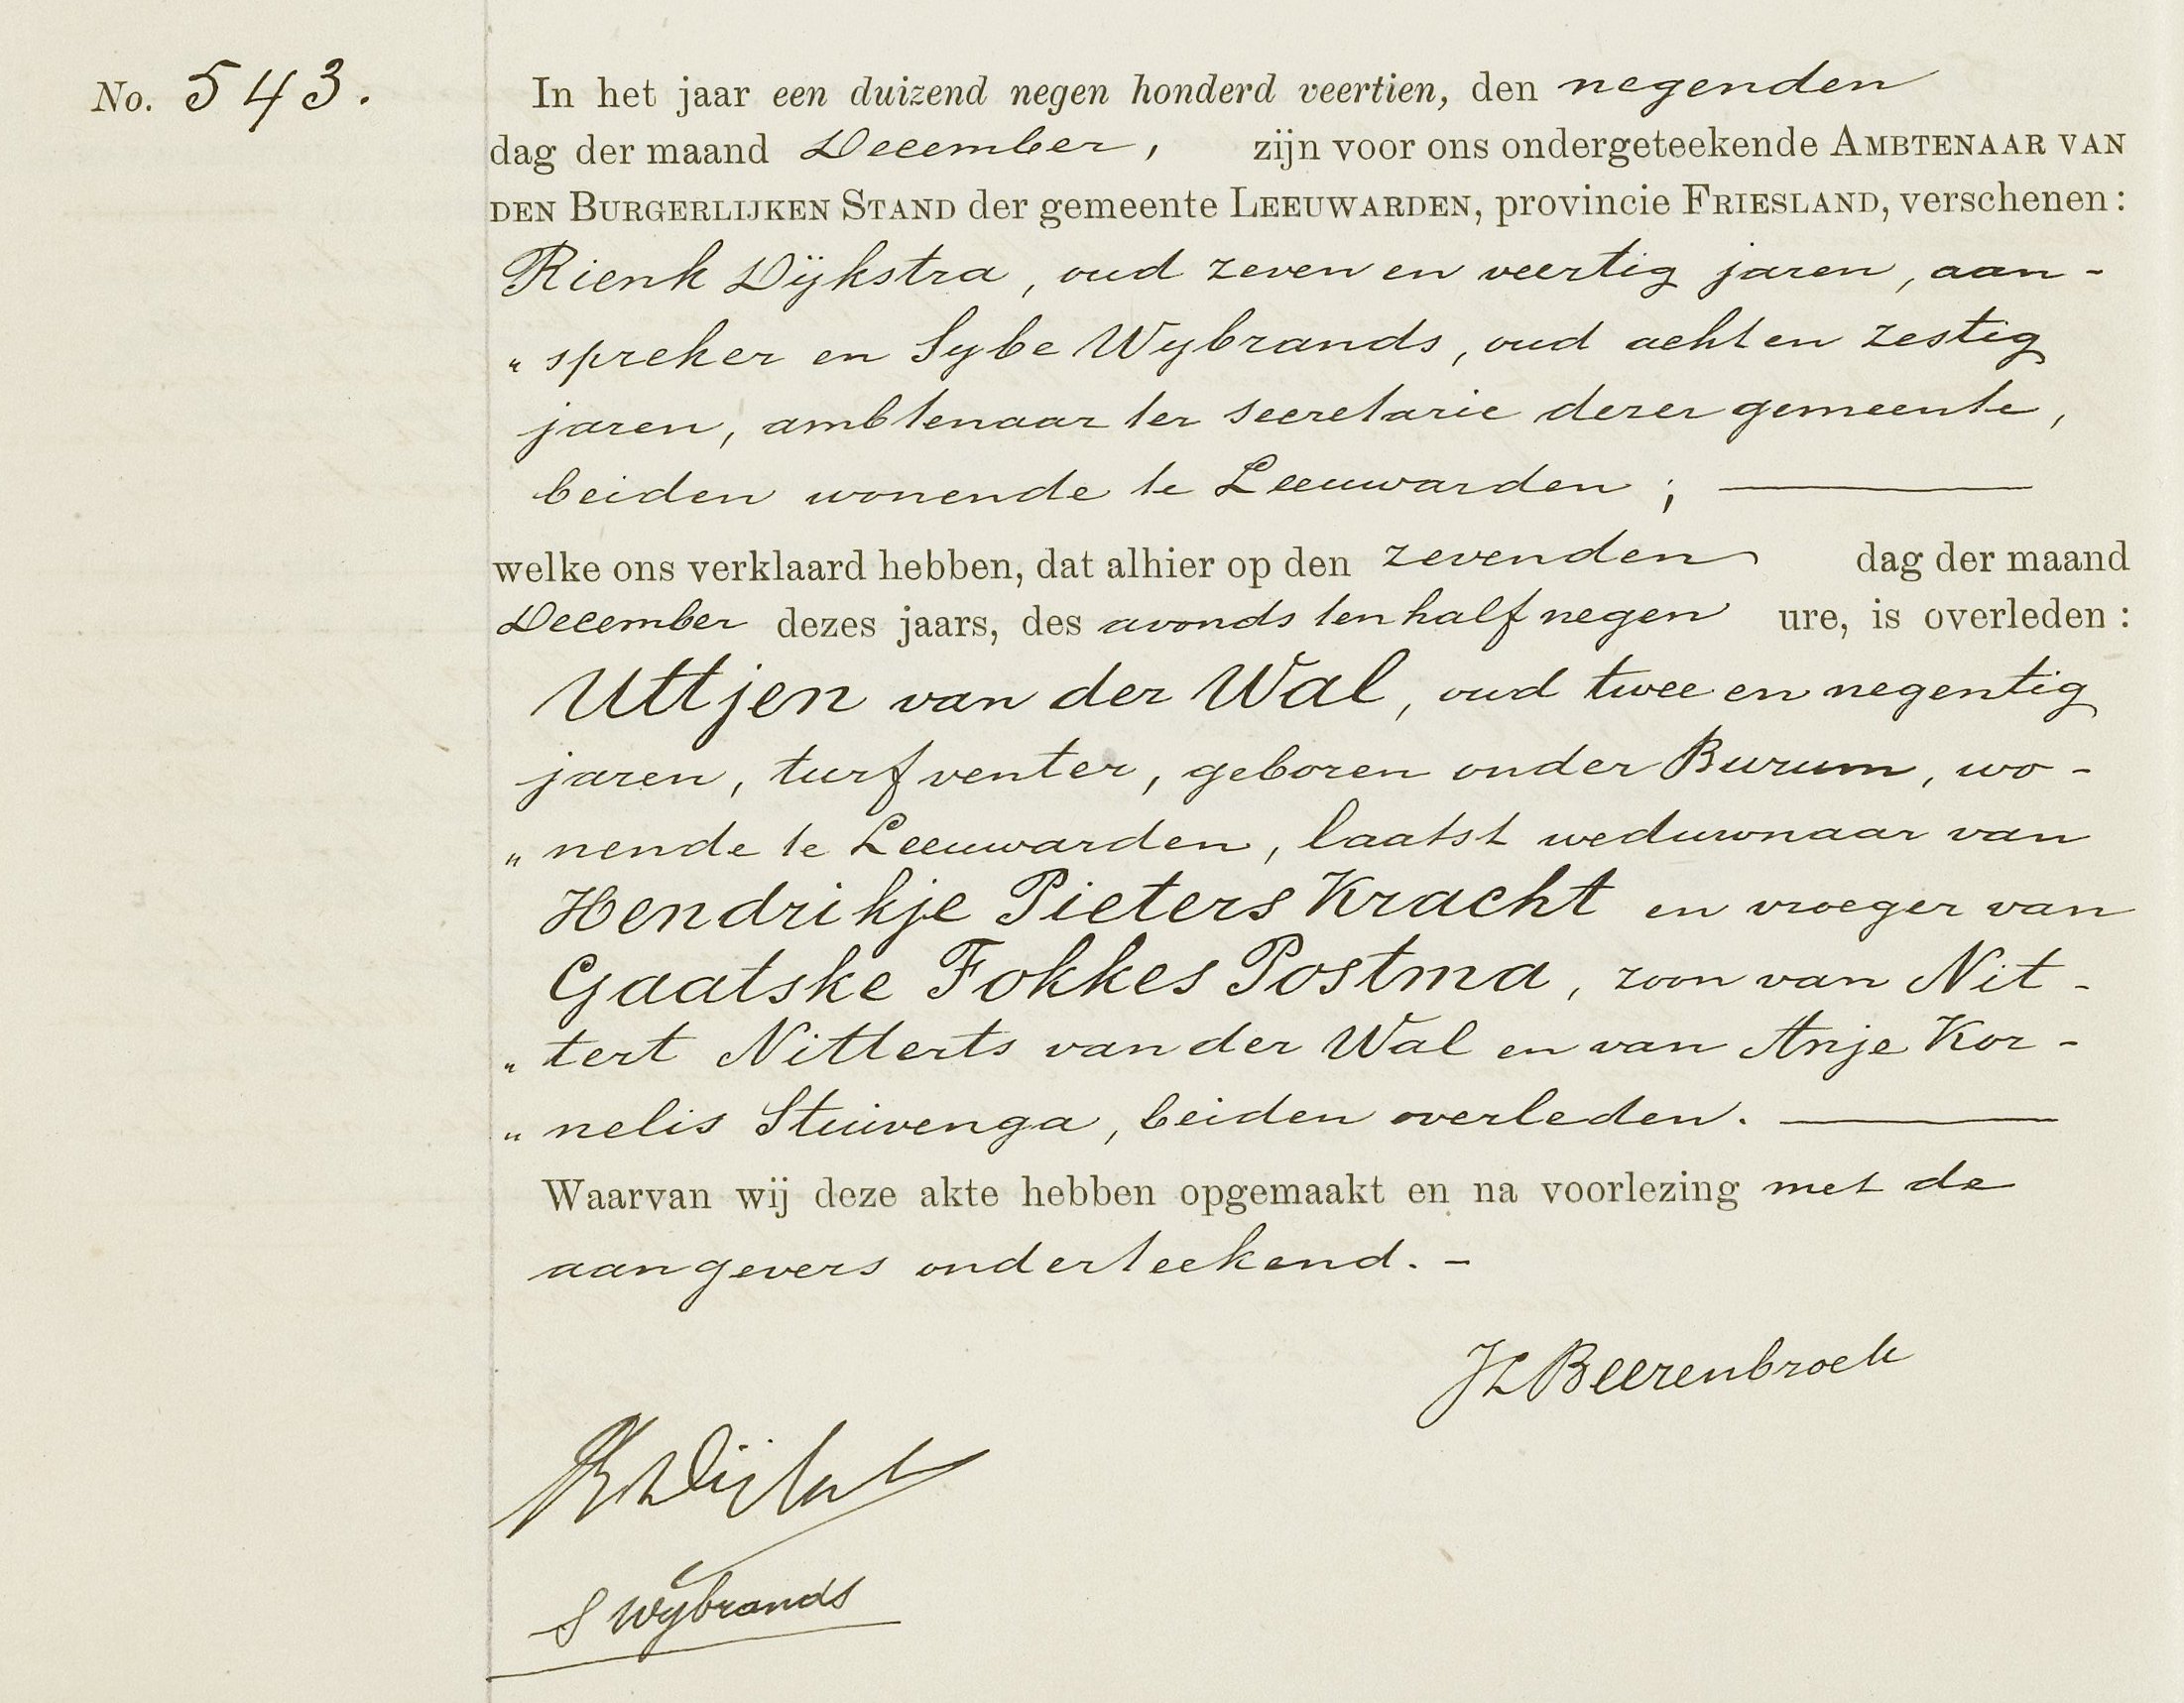 No. 543.
In het jaar een duizend negen honderd veertien, den negenden
dag der maand December, zijn voor ons ondergeteekende AMBTENAAR VAN
DEN BURGERLIJKEN STAND der gemeente LEEUWARDEN, provincie FRIESLAND, verschenen:
Rienk Dijkstra, oud zeven en veertig jaren, aan-
„ spreker en Sybe Wybrands, oud acht en zestig
jaren, ambtenaar ter secretarie dezer gemeente,
beiden wonende te Leeuwarden;
welke ons verklaard hebben, dat alhier op den zevenden dag der maand
December dezes jaars, des avonds ten half negen ure, is overleden:
Uttjen van der Wal, oud twee en negentig
jaren, turfventer, geboren onder Burum, wo-
„ nende te Leeuwarden, laatst weduwnaar van
Hendrikje Pieters Kracht en vroeger van
Gaatske Fokkes Postma, zoon van Nit-
„ tert Nitterts van der Wal en van Anje Kor-
„ nelis Stuivenga, beiden overleden.
Waarvan wij deze akte hebben opgemaakt en na voorlezing met de
aangevers onderteekend. -
JL Beerenbroek
R Dijkstra
S Wybrands